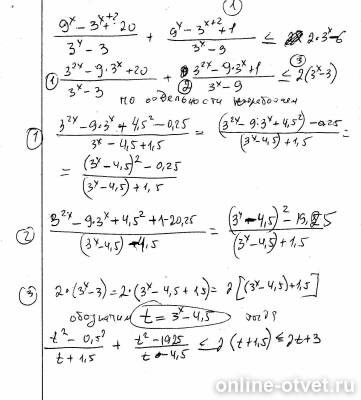 ①
(9^x - 3^{x+2} + 20)/(3^x - 3) + (9^x - 3^{x+2} + 1)/(3^x - 9) ≤ 2·3^x - 6
① (3^{2x} - 9·3^x + 20)/(3^x - 3) + ② (3^{2x} - 9·3^x + 1)/(3^x - 9) ≤ ③ 2(3^x - 3)
по одельности
① (3^{2x} - 9·3^x + 4,5² - 0,25)/(3^x - 4,5 + 1,5) = ((3^{2x} - 9·3^x + 4,5²) - 0,25)/((3^x - 4,5) + 1,5) =
= ((3^x - 4,5)² - 0,25)/((3^x - 4,5) + 1,5)
② (3^{2x} - 9·3^x + 4,5² + 1 - 20,25)/((3^x - 4,5) - 4,5) = ((3^x - 4,5)² - 19,25)/((3^x - 4,5) + 1,5)
③ 2·(3^x - 3) = 2·(3^x - 4,5 + 1,5) = 2[(3^x - 4,5) + 1,5]
обозначим t = 3^x - 4,5 тогда
(t² - 0,5²)/(t + 1,5) + (t² - 19,25)/(t - 4,5) ≤ 2(t + 1,5) ≤ 2t + 3
online-otvet.ru